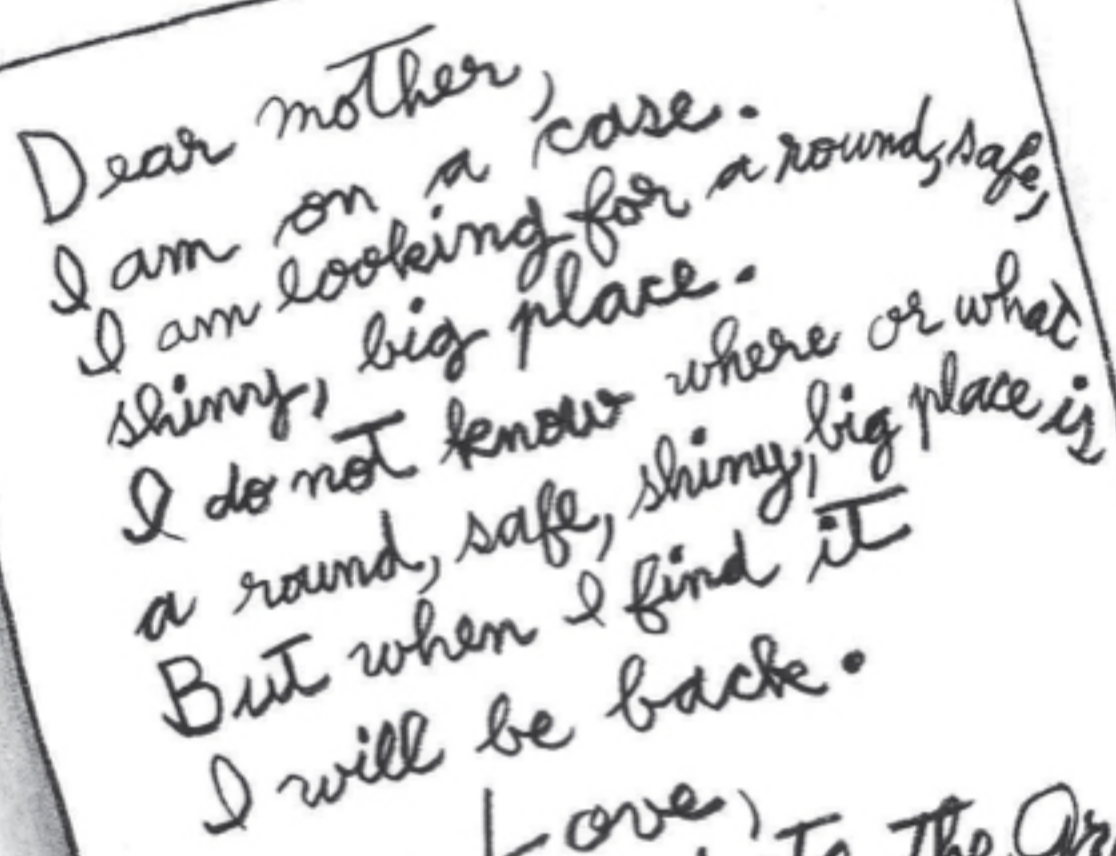 Dear mother,
I am on a case.
I am looking for a round, safe,
shiny, big place.
I do not know where or what
a round, safe, shiny, big place is
But when I find it
I will be back.
Love,
the